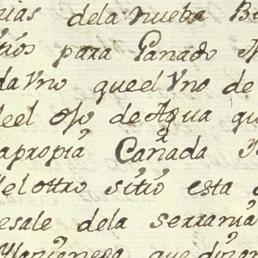 rias dela nueba
sitios para Ganado
da Vno que el Vno de
el ojo de Agua qu
apropiá Cañada
el ottro sitio esta
esale dela serrania
que